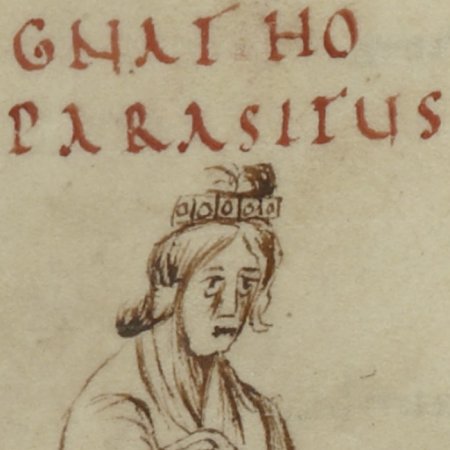 GNATHO
PARASITUS